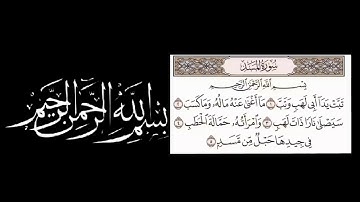 بسم الله الرحمن الرحيم
سورة المسد
بِسْمِ اللَّهِ الرَّحْمَٰنِ الرَّحِيمِ
تَبَّتْ يَدَا أَبِي لَهَبٍ وَتَبَّ ۝١ مَا أَغْنَىٰ عَنْهُ مَالُهُ وَمَا كَسَبَ ۝٢
سَيَصْلَىٰ نَارًا ذَاتَ لَهَبٍ ۝٣ وَامْرَأَتُهُ حَمَّالَةَ الْحَطَبِ ۝٤
فِي جِيدِهَا حَبْلٌ مِّن مَّسَدٍ ۝٥